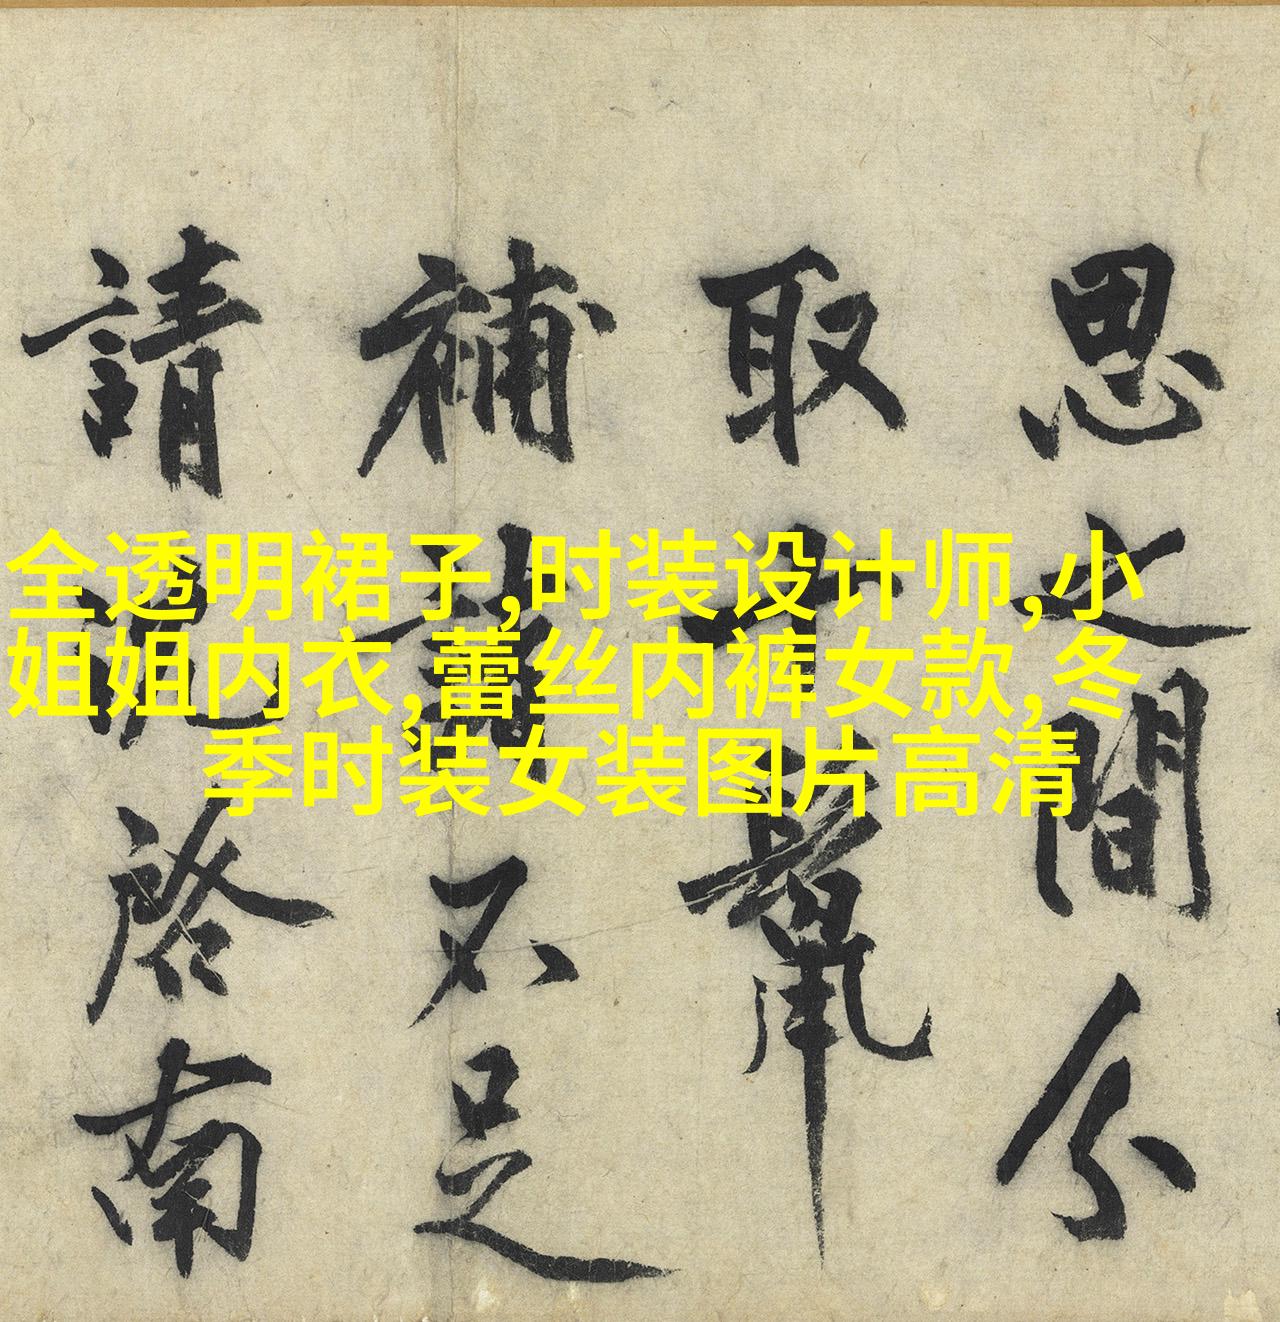 全透明裙子,时装设计师,小
姐姐内衣,蕾丝内裤女款,冬
季时装女装图片高清
思之間分
取
補不足
請沈啓南